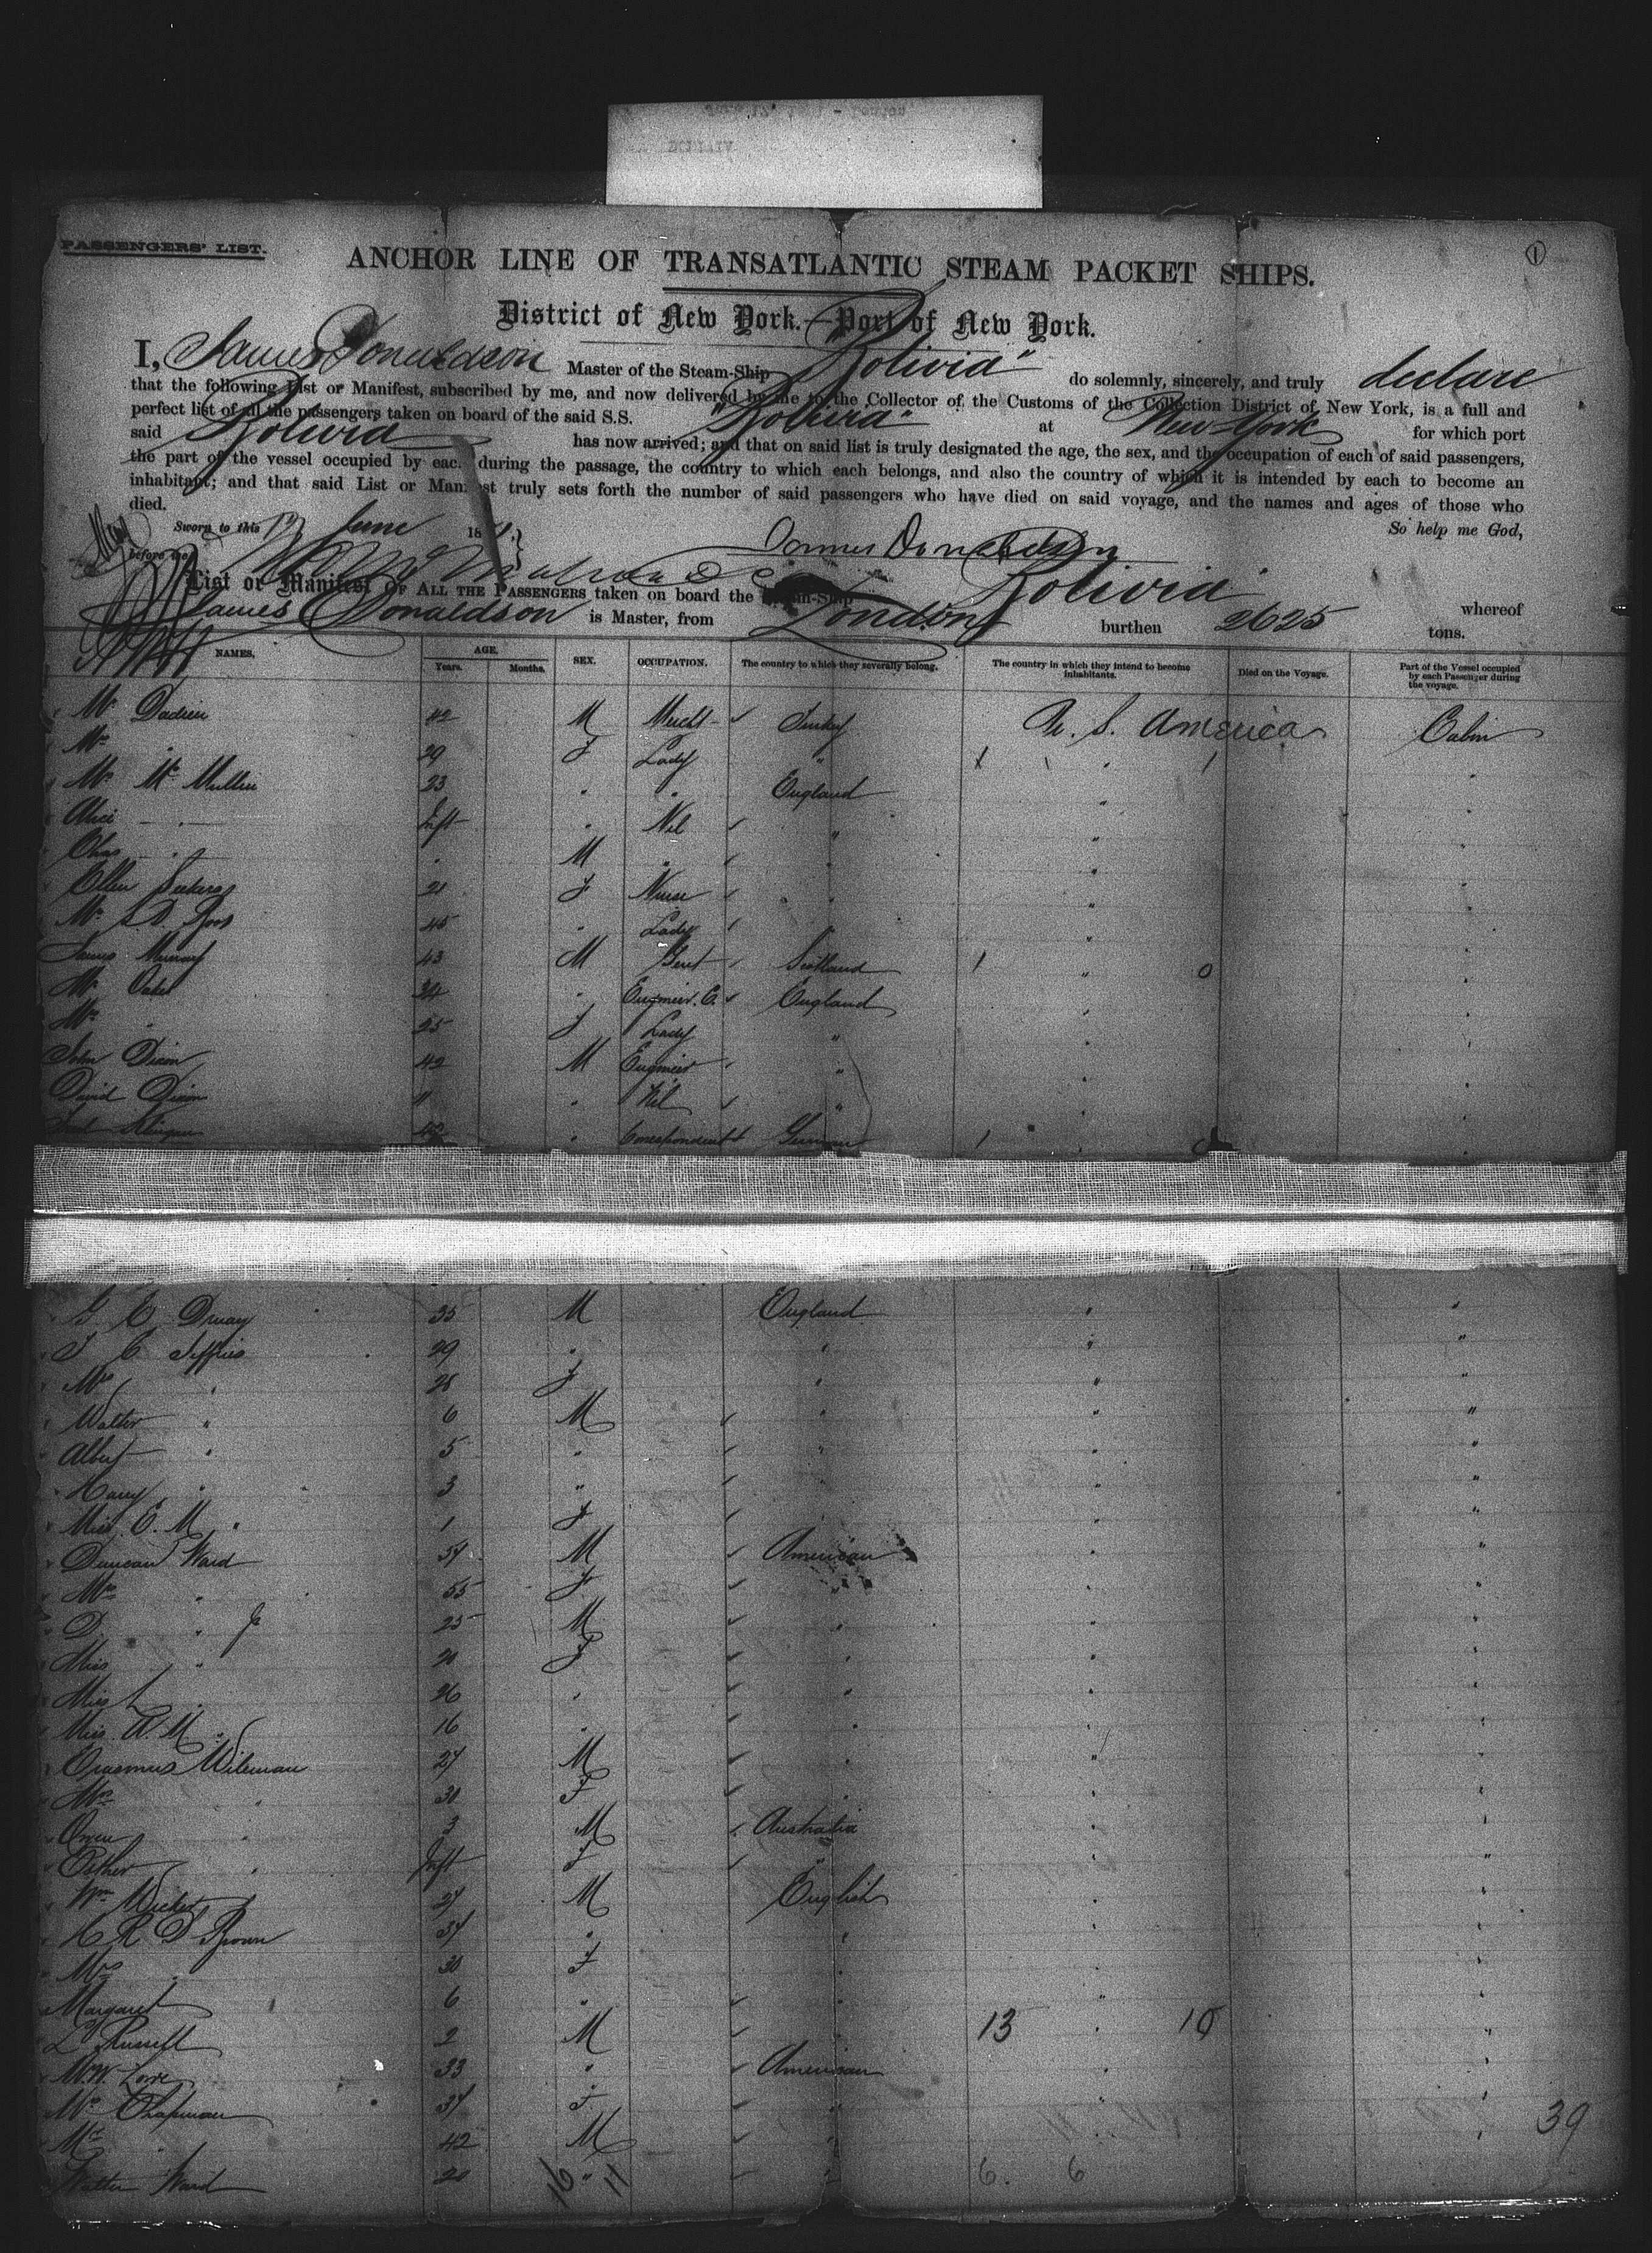 PASSENGERS' LIST.
1
ANCHOR LINE OF TRANSATLANTIC STEAM PACKET SHIPS.
District of New York.—Port of New York.
I, James Donaldson Master of the Steam-Ship "Bolivia" do solemnly, sincerely, and truly declare
that the following List or Manifest, subscribed by me, and now delivered by me to the Collector of the Customs of the Collection District of New York, is a full and
perfect list of all the passengers taken on board of the said S.S. "Bolivia" at New York for which port
said Bolivia has now arrived; and that on said list is truly designated the age, the sex, and the occupation of each of said passengers,
the part of the vessel occupied by each during the passage, the country to which each belongs, and also the country of which it is intended by each to become an
inhabitant; and that said List or Manifest truly sets forth the number of said passengers who have died on said voyage, and the names and ages of those who
died.
So help me God,
Sworn to this 13 June 18
before me
James Donaldson
List or Manifest OF ALL THE PASSENGERS taken on board the Steam-Ship Bolivia whereof
James Donaldson is Master, from London burthen 2625 tons.
NAMES. AGE. Years. Months. SEX. OCCUPATION. The country to which they severally belong. The country in which they intend to become inhabitants. Died on the Voyage. Part of the Vessel occupied by each Passenger during the voyage.
Mr 42 M Mercht Turkey U. S. America Cabin
29 F Lady "
Mc Mullen 23 " " England " "
Alice " Inft " Nil " " "
Chas " " M " " " "
Ellen 21 F Nurse " " "
45 " Lady " "
James Murray 43 M Gent Scotland 1 " 0 "
Mr 34 " Engineer C. England " "
" 25 F Lady " " "
John Dixon 42 M Engineer " " "
David Dixon 11 " Nil " " "
42 " Correspondent German 1 "
G E Druay 35 M England " "
C Jeffries 29 " " " "
Mrs " 28 F " " "
Walter " 6 M " " "
Albert " 5 " " " "
Harry " 3 " " "
Miss E. M " 1 F " "
Duncan Ward 57 M American " "
Mrs " 55 F " " "
D. " Jr 25 M " " "
Miss " 21 F " " "
Miss L " 26 " " " "
Miss A. M " 16 " " " "
Erasmus Wileman 27 M " " "
Mrs " 30 F " "
Owen " 3 M Australia " "
Esther " Inft F " " "
Wm 27 M English " "
H R D Brown 37 " " " "
Mrs " 30 F " "
Margaret 6 " " " "
L Russell 2 M " 13 " 10 "
M. W. Love 33 " American "
Mrs Chapman 37 F " " "
Mr " 42 M " " 39
Walter Ward 20 " " 6. 6
16 11